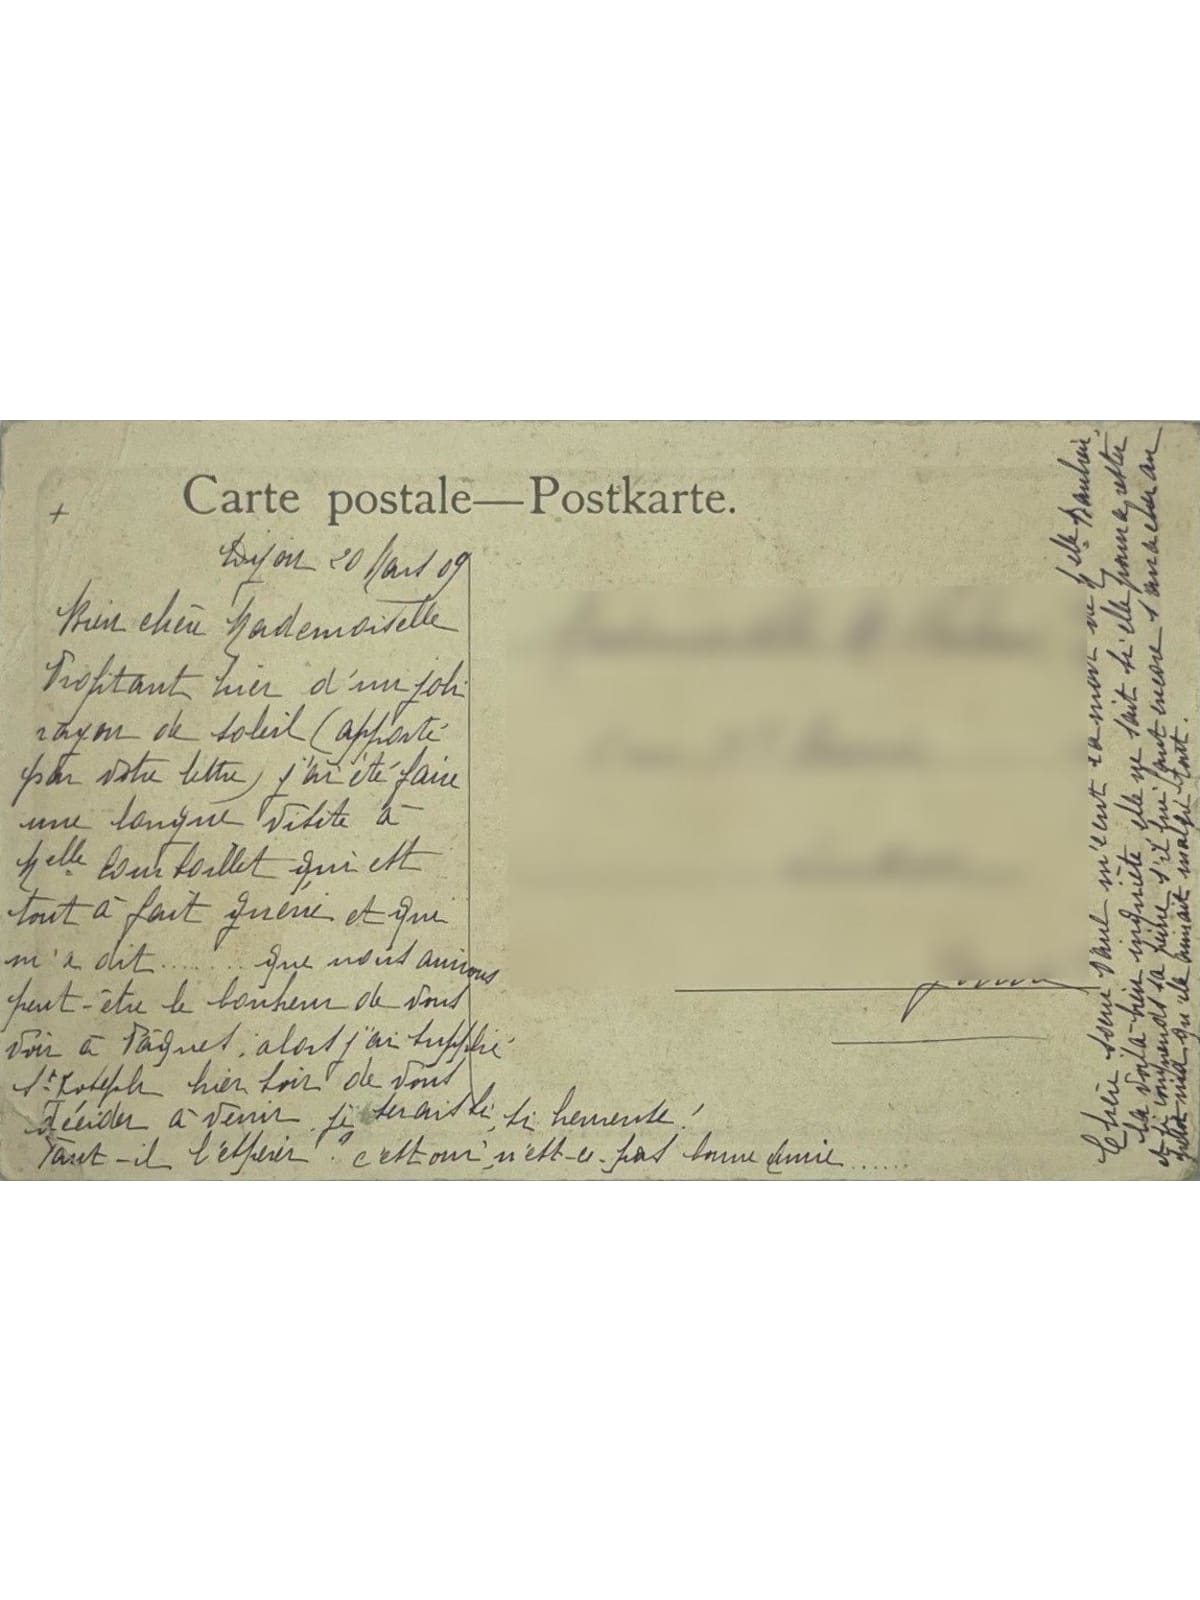 Carte postale—Postkarte.
+
Dijon 20 Mars 09
Bien chère Mademoiselle
Profitant hier d'un joli
rayon de soleil (apporté
par votre lettre) j'ai été faire
une longue visite à
Melle qui est
tout à fait guérie et qui
m'a dit ....... que nous aurions
peut-être le bonheur de vous
voir à Pâques; alors j'ai supplié
St Joseph hier soir de vous
décider à venir, je serais si, si heureuse!
Faut-il l'espérer? c'est oui, n'est-ce-pas bonne amie ......
Chère sœur Paul m'est
La voilà bien inquiète elle ne sait si elle pourra rester
et je comprends sa peine s'il lui faut encore s'arracher au
petit nid qu'elle aimait malgré tout.